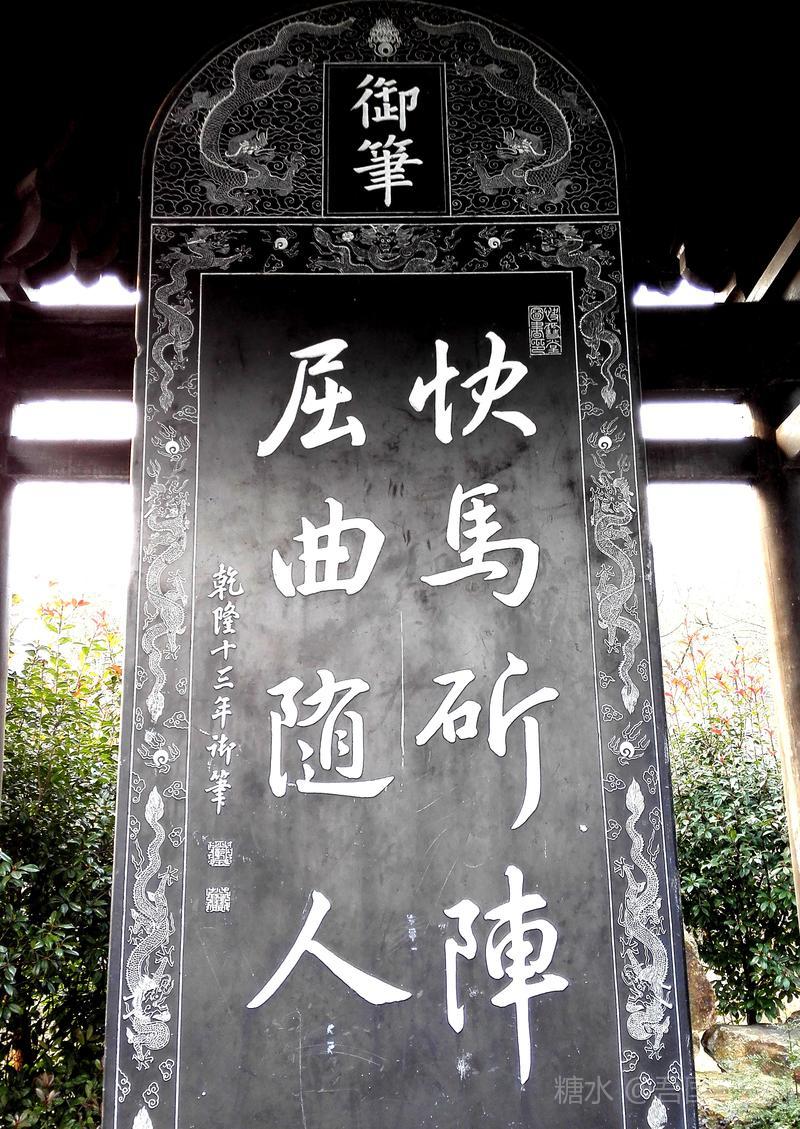 御筆
快馬斫陣
屈曲随人
乾隆十三年御筆
糖水 ©吾